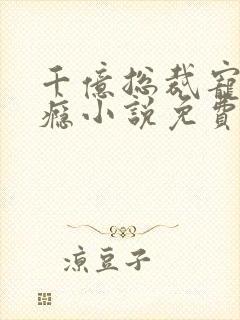 千億總裁寵
癮小說免費
涼豆子